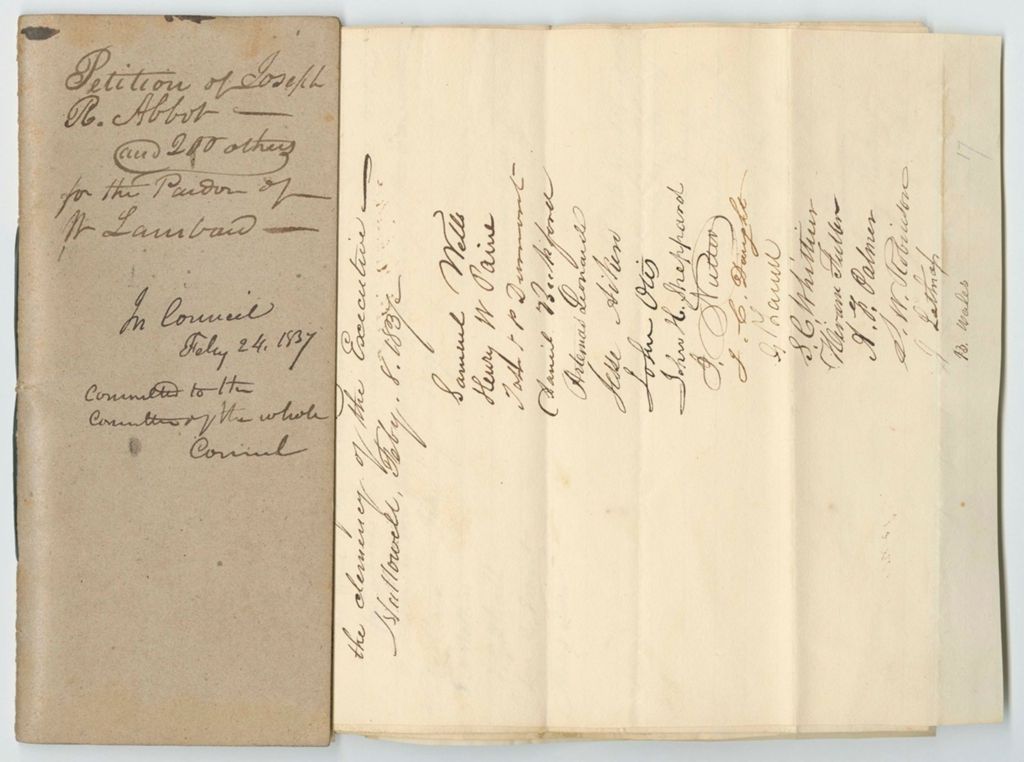 Petition of Joseph
R. Abbot —
and 200 others
for the Pardon of
W Lambard —
In Council
Feby 24. 1837
Committed to the
Committee of the whole
Council
the clemency of the Executive —
Hallowell, Feby. 8. 1837
Samuel Wells
Henry W Paine
Daniel Beckford
Artemas Leonard
Jesse Aiken
John Otis
John H. Sheppard
J. Nutter
J. C. Dwight
S. C. Whittier
Hiram Fuller
A. G. Palmer
S. W. Robinson
B. Wales
17